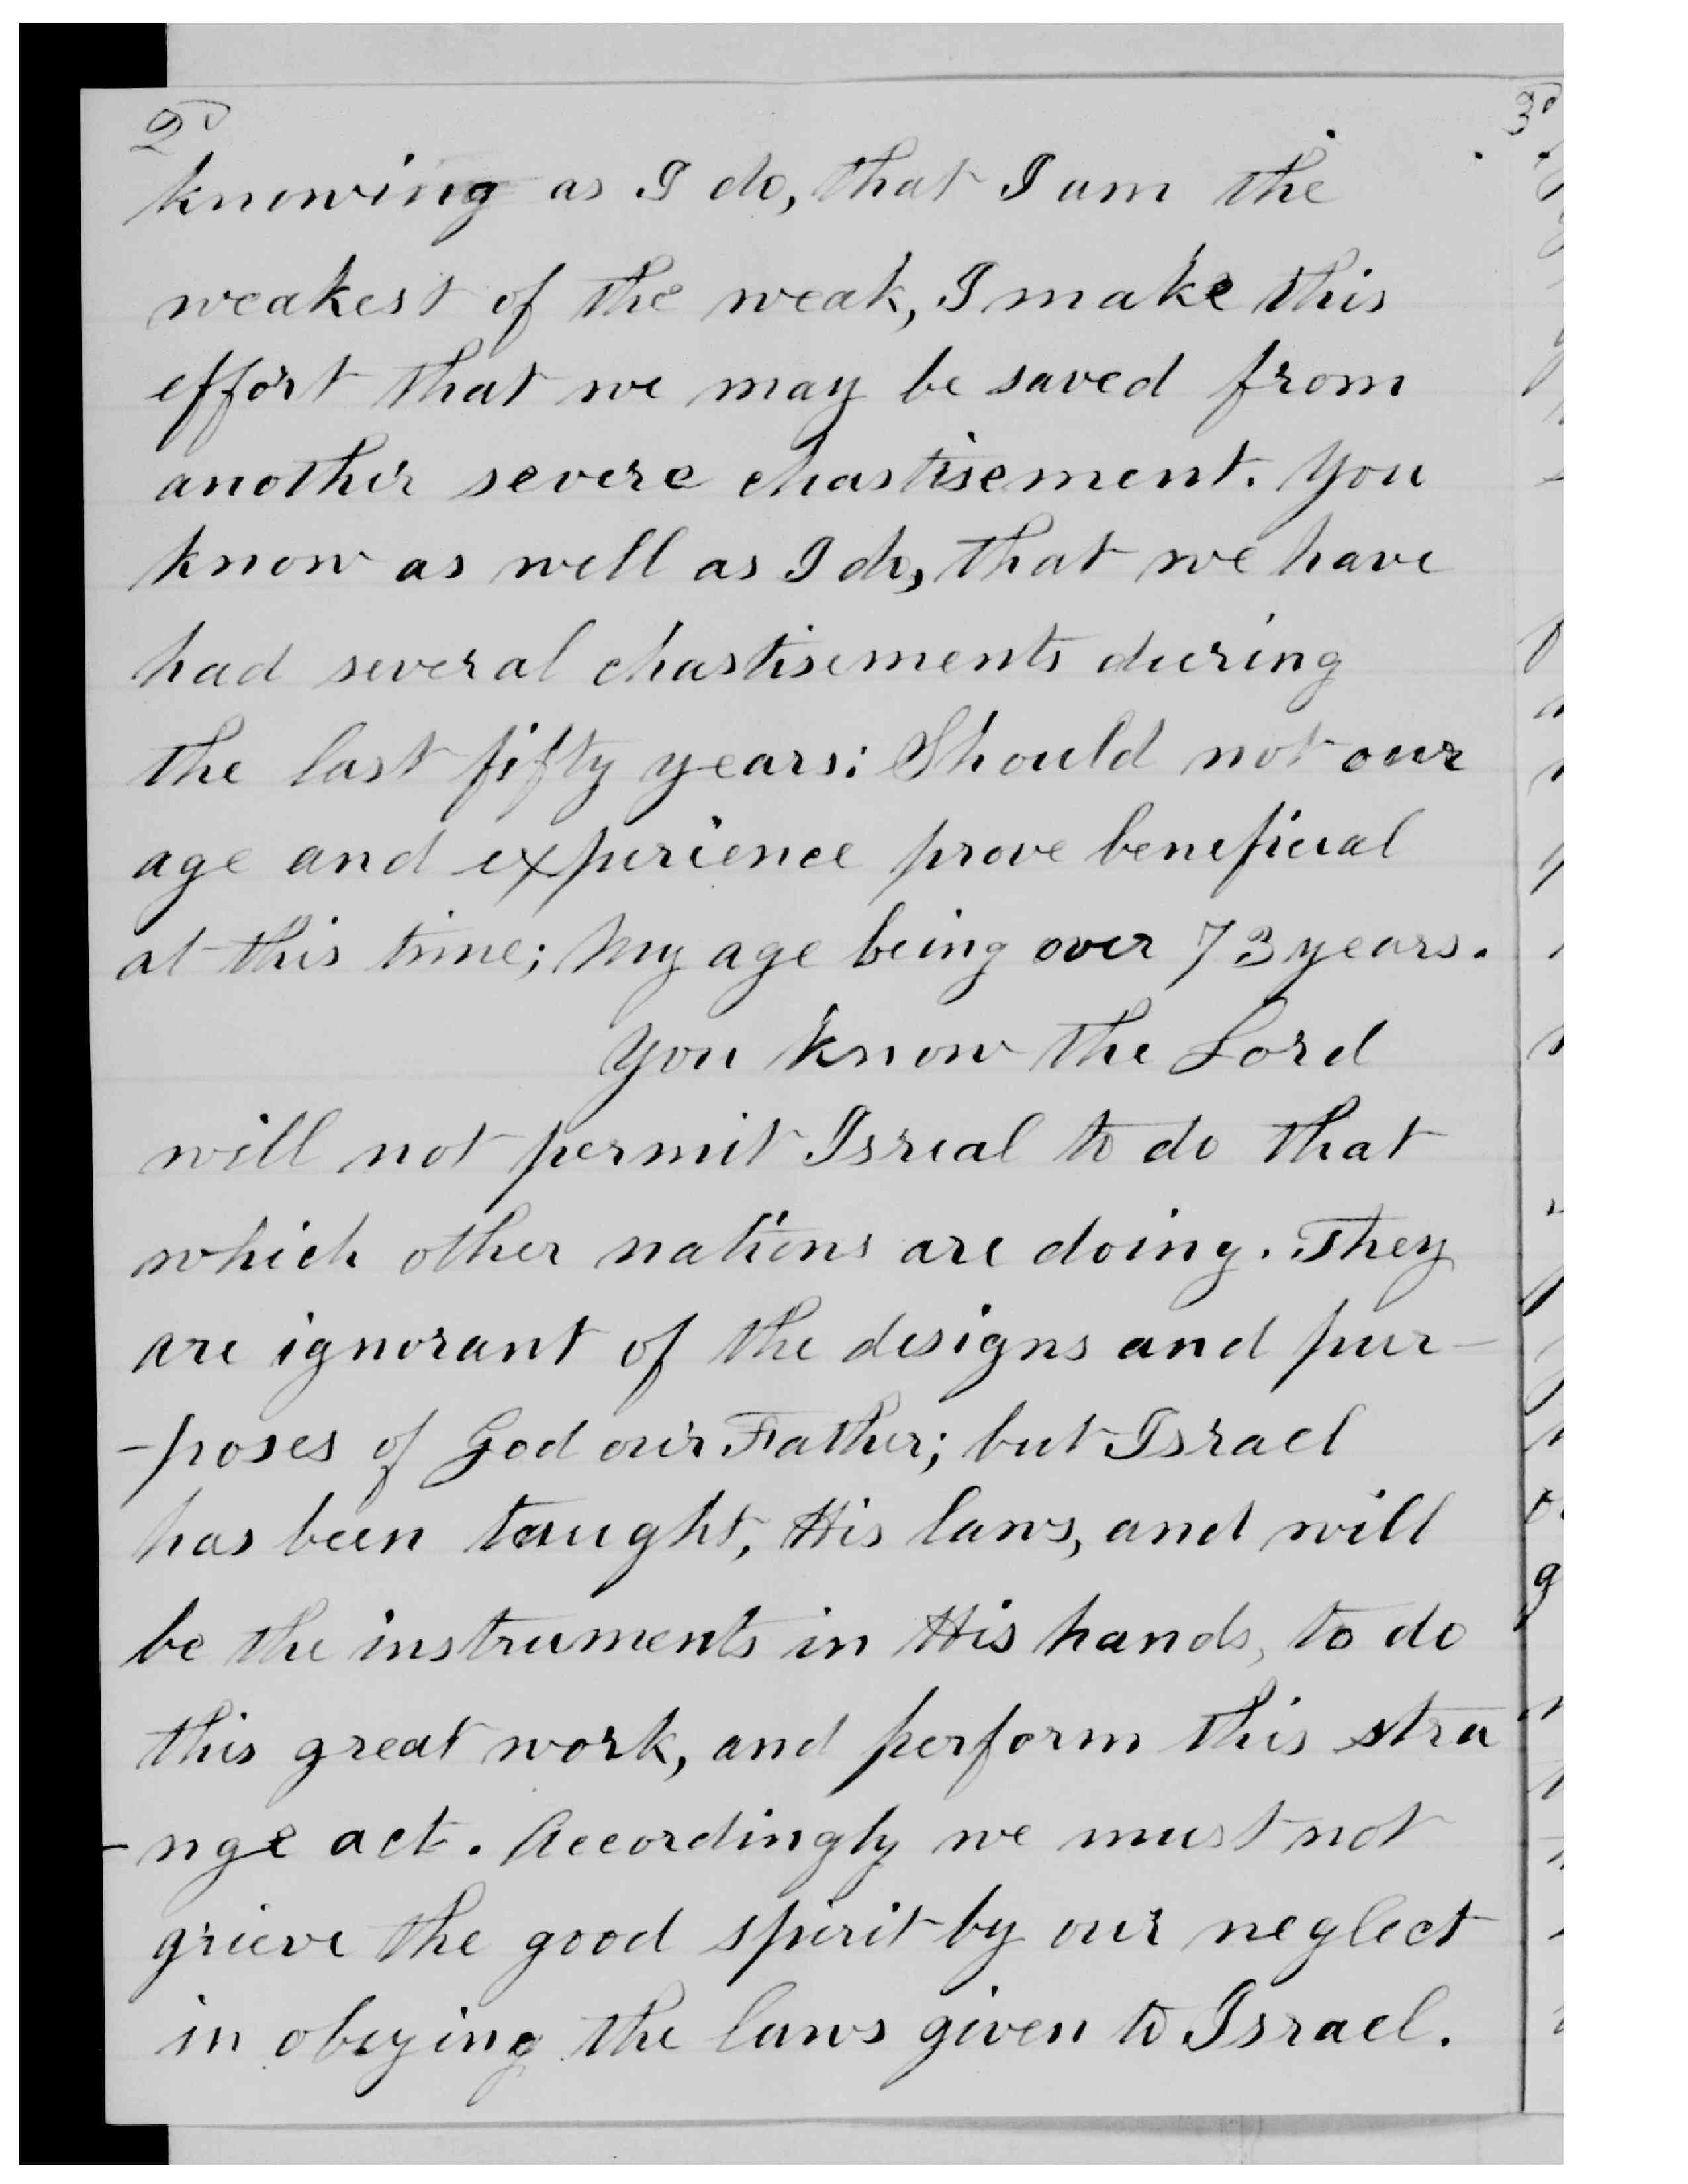 2d
knowing as I do, that I am the
weakest of the weak, I make this
effort that we may be saved from
another severe chastisement. You
know as well as I do, that we have
had several chastisements during
the last fifty years: Should not our
age and experience prove beneficial
at this time; My age being over 73 years.
You know the Lord
will not permit Isreal to do that
which other nations are doing. They
are ignorant of the designs and pur-
-poses of God our Father; but Israel
has been taught, His laws, and will
be the instruments in His hands, to do
this great work, and perform this stra
-nge act. Accordingly we must not
grieve the good spirit by our neglect
in obeying the laws given to Israel.
3d